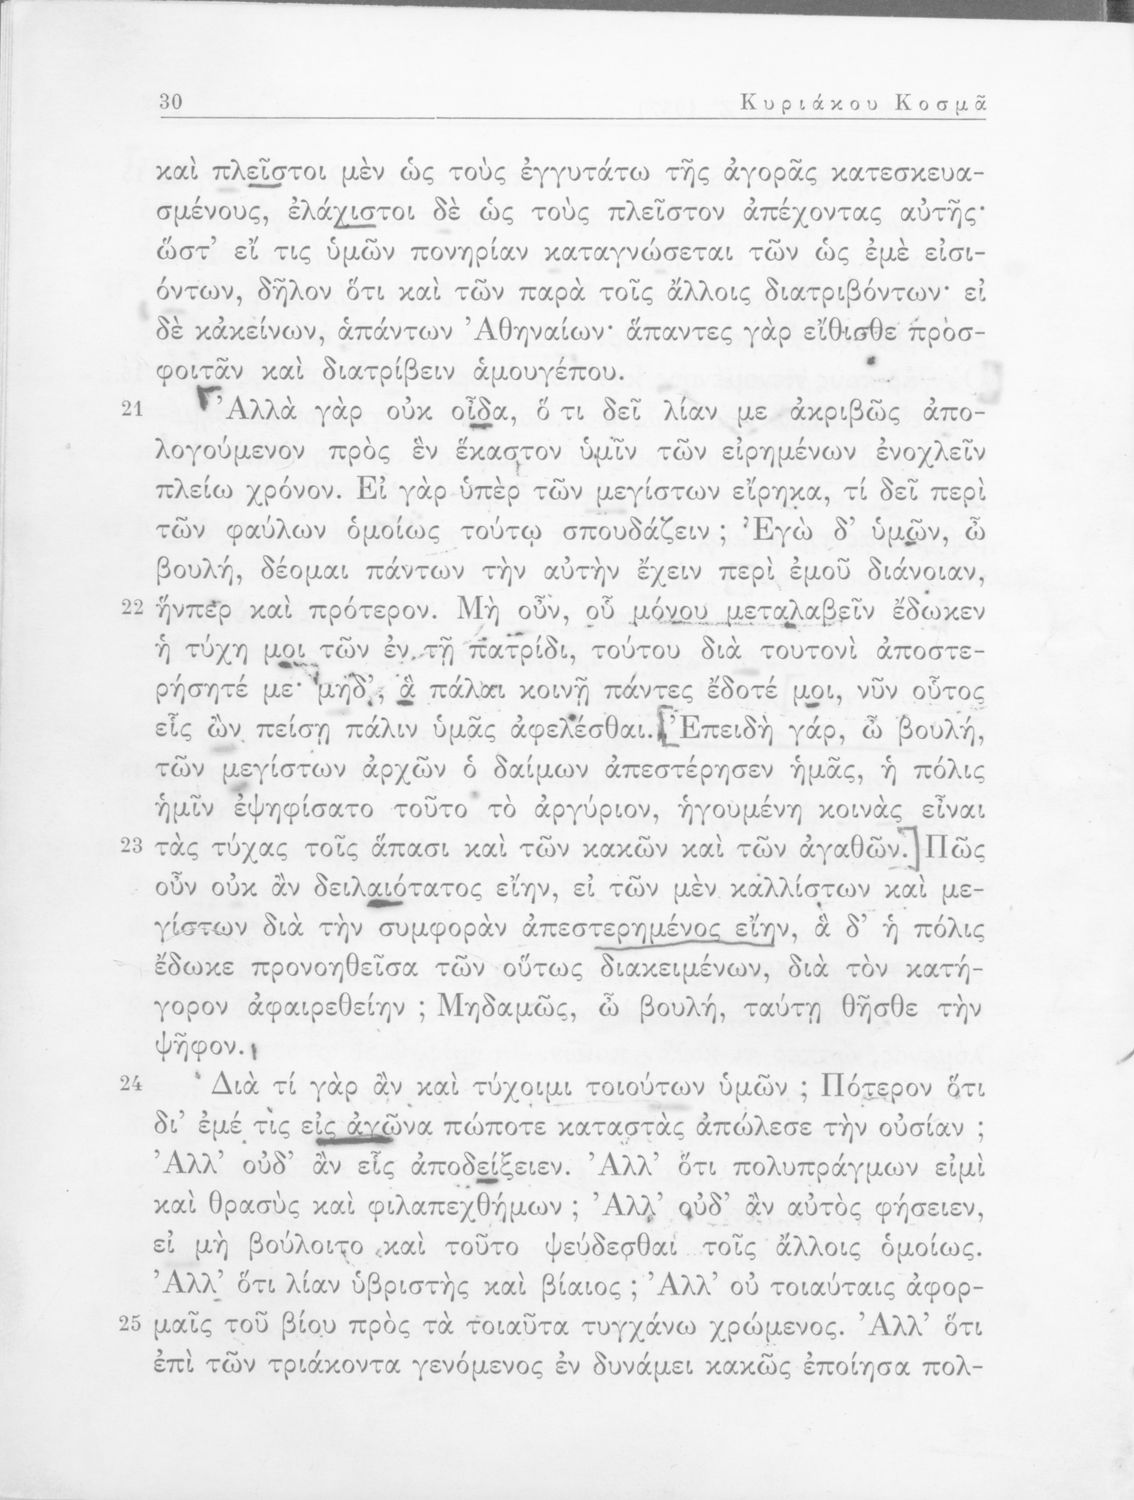 30 Κυριάκου Κοσμᾶ
καὶ πλεῖστοι μὲν ὡς τοὺς ἐγγυτάτω τῆς ἀγορᾶς κατεσκευα-
σμένους, ἐλάχιστοι δὲ ὡς τοὺς πλεῖστον ἀπέχοντας αὐτῆς·
ὥστ’ εἴ τις ὑμῶν πονηρίαν καταγνώσεται τῶν ὡς ἐμὲ εἰσι-
όντων, δῆλον ὅτι καὶ τῶν παρὰ τοῖς ἄλλοις διατριβόντων· εἰ
δὲ κἀκείνων, ἁπάντων Ἀθηναίων· ἅπαντες γὰρ εἴθισθε προσ-
φοιτᾶν καὶ διατρίβειν ἁμουγέπου.
21 Ἀλλὰ γὰρ οὐκ οἶδα, ὅ τι δεῖ λίαν με ἀκριβῶς ἀπο-
λογούμενον πρὸς ἓν ἕκαστον ὑμῖν τῶν εἰρημένων ἐνοχλεῖν
πλείω χρόνον. Εἰ γὰρ ὑπὲρ τῶν μεγίστων εἴρηκα, τί δεῖ περὶ
τῶν φαύλων ὁμοίως τούτῳ σπουδάζειν ; Ἐγὼ δ’ ὑμῶν, ὦ
βουλή, δέομαι πάντων τὴν αὐτὴν ἔχειν περὶ ἐμοῦ διάνοιαν,
22 ἥνπερ καὶ πρότερον. Μὴ οὖν, οὗ μόνου μεταλαβεῖν ἔδωκεν
ἡ τύχη μοι τῶν ἐν τῇ πατρίδι, τούτου διὰ τουτονὶ ἀποστε-
ρήσητέ με· μηδ’, ἃ πάλαι κοινῇ πάντες ἔδοτέ μοι, νῦν οὗτος
εἷς ὢν πείσῃ πάλιν ὑμᾶς ἀφελέσθαι. Ἐπειδὴ γάρ, ὦ βουλή,
τῶν μεγίστων ἀρχῶν ὁ δαίμων ἀπεστέρησεν ἡμᾶς, ἡ πόλις
ἡμῖν ἐψηφίσατο τοῦτο τὸ ἀργύριον, ἡγουμένη κοινὰς εἶναι
23 τὰς τύχας τοῖς ἅπασι καὶ τῶν κακῶν καὶ τῶν ἀγαθῶν. Πῶς
οὖν οὐκ ἂν δειλαιότατος εἴην, εἰ τῶν μὲν καλλίστων καὶ με-
γίστων διὰ τὴν συμφορὰν ἀπεστερημένος εἴην, ἃ δ’ ἡ πόλις
ἔδωκε προνοηθεῖσα τῶν οὕτως διακειμένων, διὰ τὸν κατή-
γορον ἀφαιρεθείην ; Μηδαμῶς, ὦ βουλή, ταύτῃ θῆσθε τὴν
ψῆφον.
24 Διὰ τί γὰρ ἂν καὶ τύχοιμι τοιούτων ὑμῶν ; Πότερον ὅτι
δι’ ἐμέ τις εἰς ἀγῶνα πώποτε καταστὰς ἀπώλεσε τὴν οὐσίαν ;
Ἀλλ’ οὐδ’ ἂν εἷς ἀποδείξειεν. Ἀλλ’ ὅτι πολυπράγμων εἰμὶ
καὶ θρασὺς καὶ φιλαπεχθήμων ; Ἀλλ’ οὐδ’ ἂν αὐτὸς φήσειεν,
εἰ μὴ βούλοιτο καὶ τοῦτο ψεύδεσθαι τοῖς ἄλλοις ὁμοίως.
Ἀλλ’ ὅτι λίαν ὑβριστὴς καὶ βίαιος ; Ἀλλ’ οὐ τοιαύταις ἀφορ-
25 μαῖς τοῦ βίου πρὸς τὰ τοιαῦτα τυγχάνω χρώμενος. Ἀλλ’ ὅτι
ἐπὶ τῶν τριάκοντα γενόμενος ἐν δυνάμει κακῶς ἐποίησα πολ-